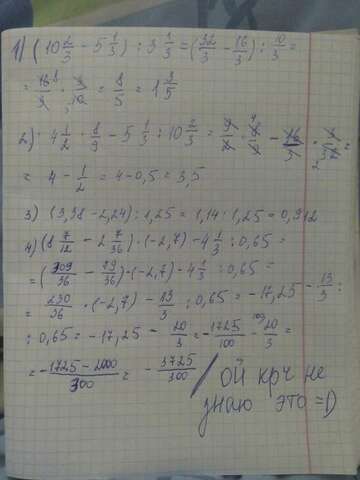 1) (10 2/3 - 5 1/3) : 3 1/3 = (32/3 - 16/3) : 10/3 =
= 16/3 · 3/10 = 8/5 = 1 3/5
2) 4 1/2 · 8/9 - 5 1/3 : 10 2/3 = 9/2 · 8/9 - 16/3 · 3/32 =
= 4 - 1/2 = 4 - 0,5 = 3,5
3) (3,38 - 2,24) : 1,25 = 1,14 : 1,25 = 0,912
4) (8 7/12 - 2 7/36) · (-2,7) - 4 1/3 : 0,65 =
= (309/36 - 79/36) · (-2,7) - 4 1/3 : 0,65 =
= 230/36 · (-2,7) - 13/3 : 0,65 = -17,25 - 13/3 :
: 0,65 = -17,25 - 20/3 = -1725/100 - 20/3 =
= -1725 - 2000/300 = - 3725/300
ой крч не
знаю это =D